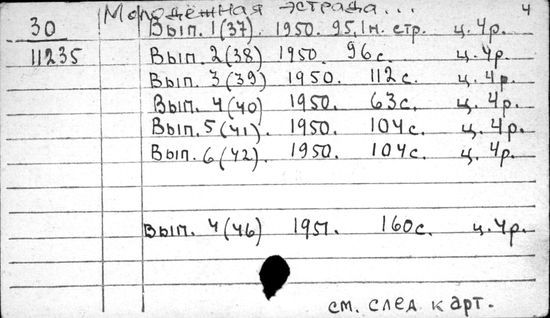 Молодёжная эстрада... 4
30 Вып. 1(37) 1950. 95,1н. стр. ц. 4р.
11235 Вып. 2(38) 1950. 96с. ц. 4р.
Вып. 3(39) 1950. 112с. ц. 4р.
Вып. 4(40) 1950. 63с. ц. 4р.
Вып. 5(41) 1950. 104с. ц. 4р.
Вып. 6(42) 1950. 104с. ц. 4р.
Вып. 4(46) 1951. 160с. ц. 4р.
см. след карт.